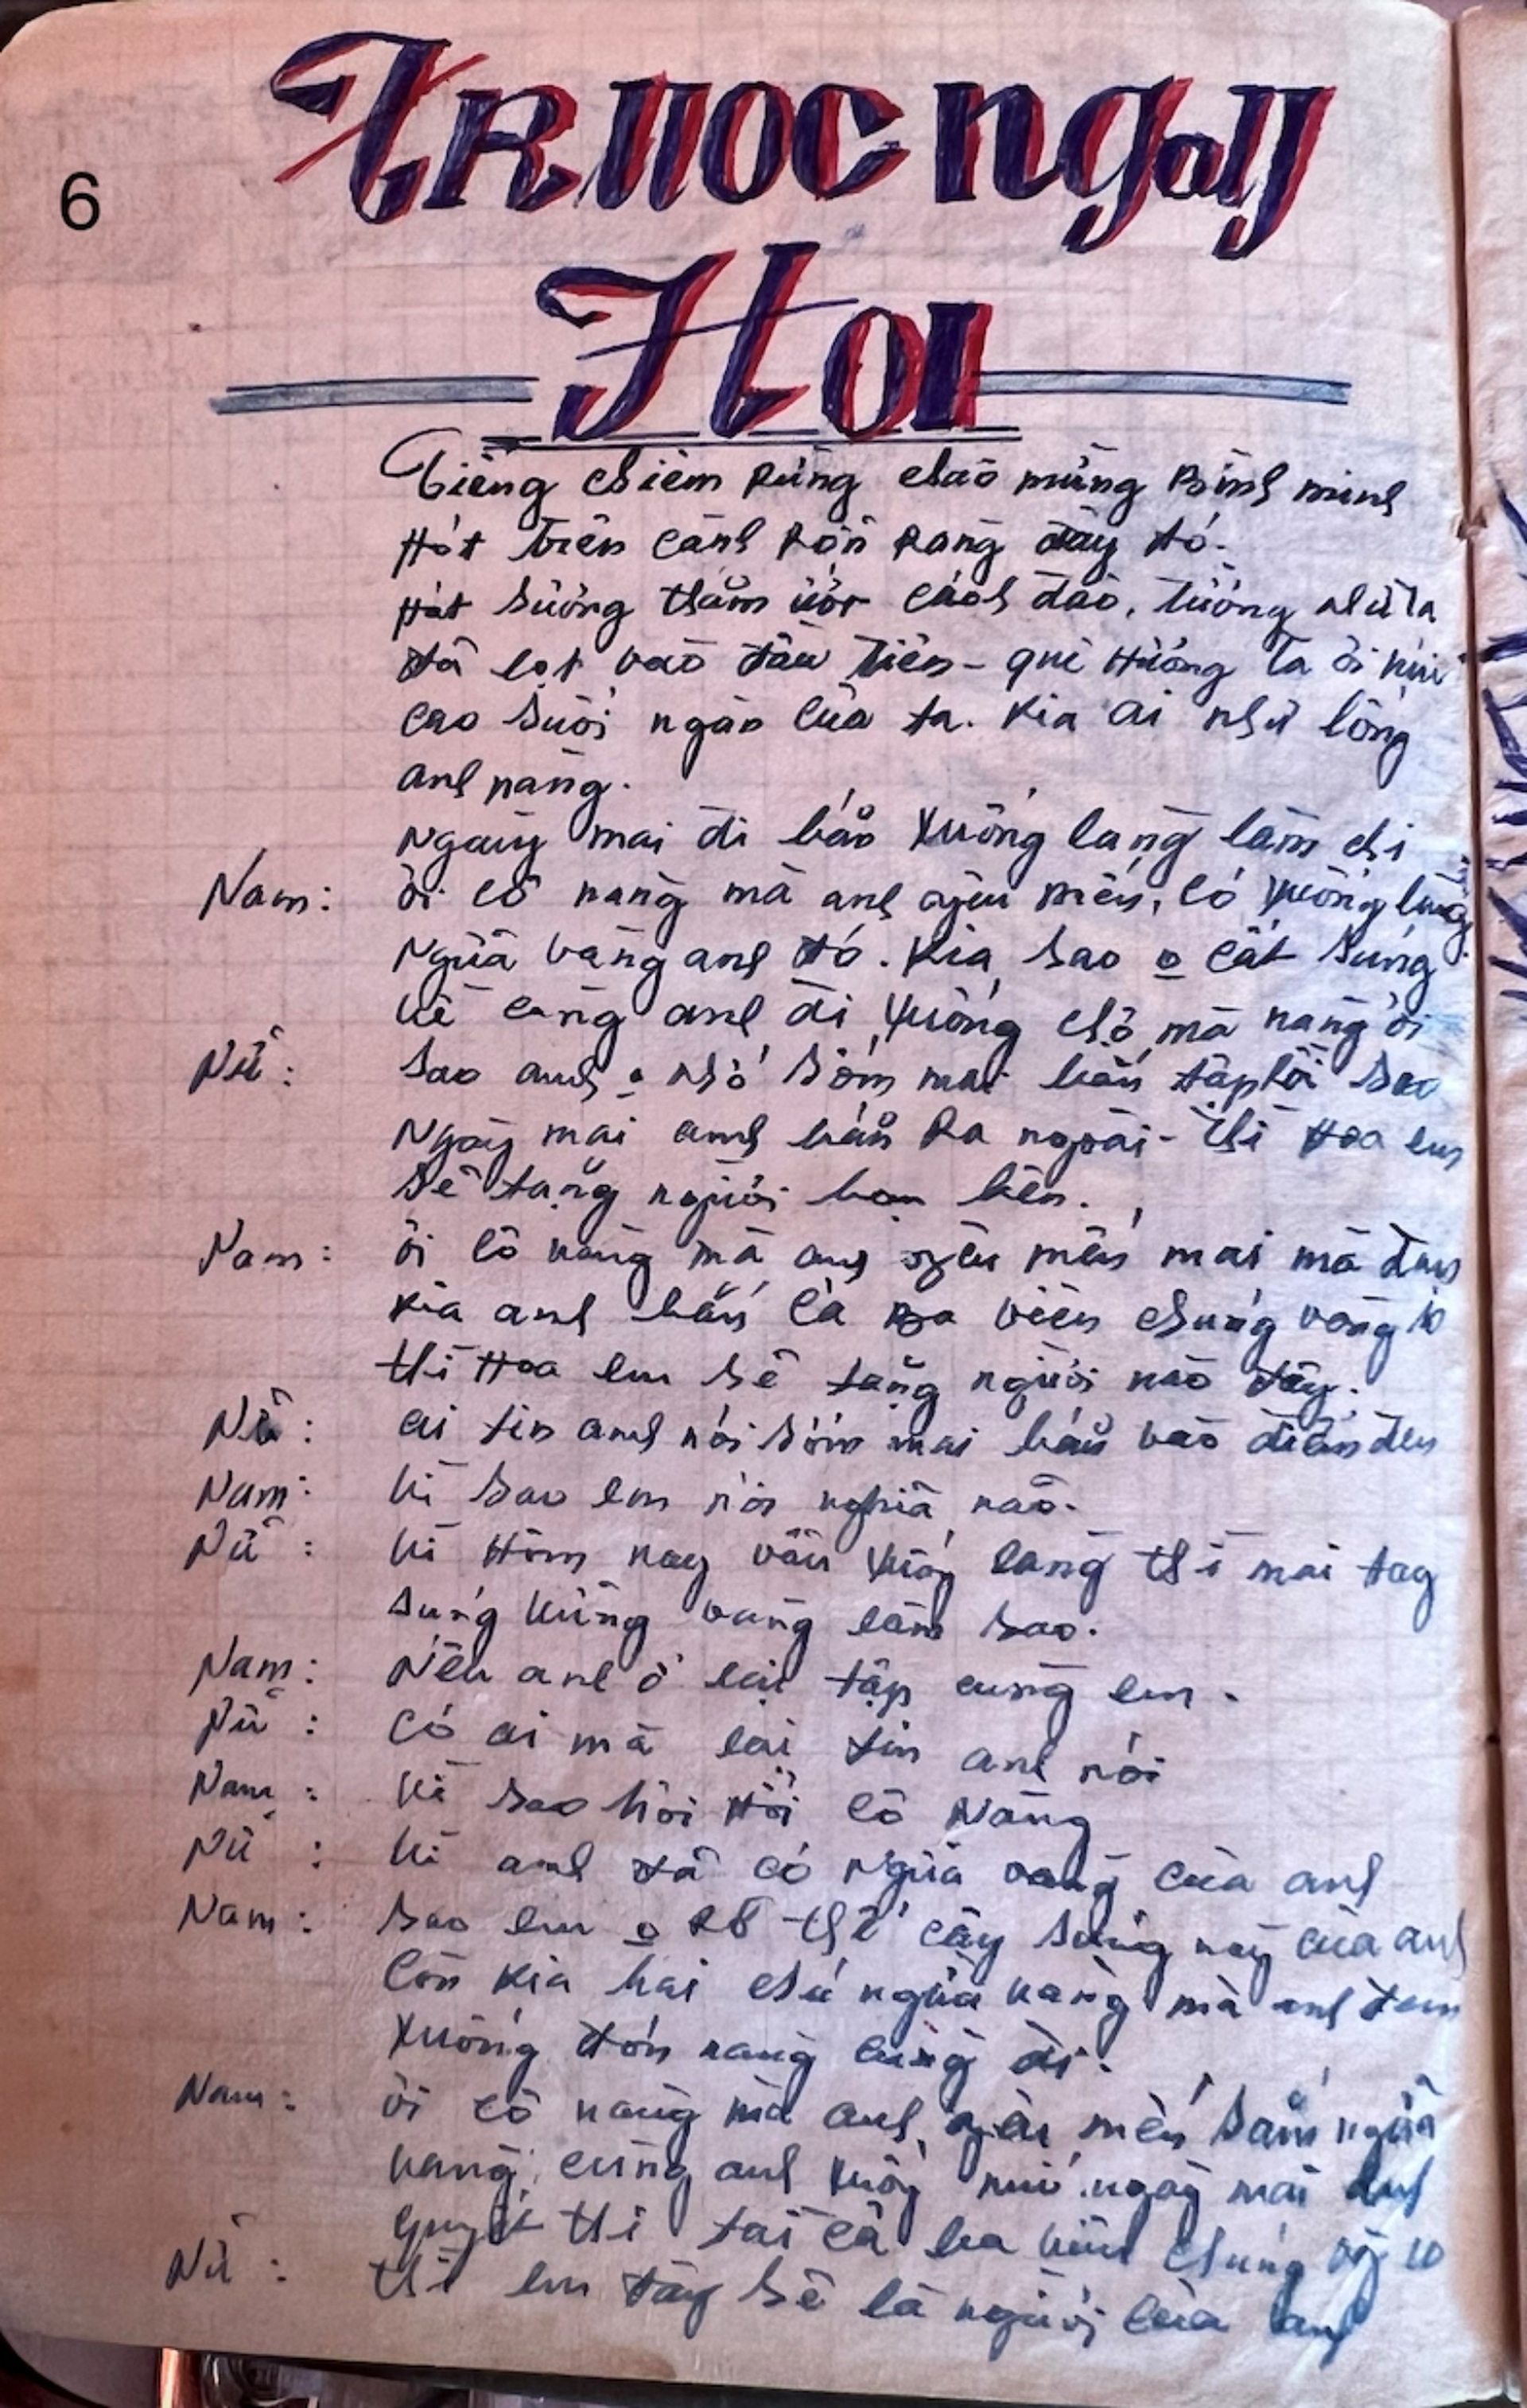 6
TRƯỚC NGÀY
HỘI
Tiếng chiêm rừng chào mừng bình minh
Hót trên cành rộn ràng đây đó.
Hát sương thấm ướt cánh đào, tưởng như ta
đã lọt vào đầu tiên - quê hương ta ơi núi
cao suối ngàn của ta. Kia ai như lòng
anh nàng.
Ngày mai đi bắn xuống làng làm chi
Nam: ơi cô nàng mà anh yêu mến, có xuống làng
Ngựa vàng anh đó. Kia sao o cất súng
về cùng anh đi xuống chợ mà nàng ơi
Nữ: Sao anh o nhớ sớm mai bắn tập rồi sao
Ngày mai anh bắn ra ngoài - thì Hoa em
sẽ tặng người bạn bên.
Nam: ơi cô nàng mà anh yêu mến mai mà đem
kia anh bắn cả ba viên chúng vòng 10
thì Hoa em sẽ tặng người nào đây.
Nữ: ai tin anh nói sớm mai bắn vào điểm đen
Nam: Vì sao em nói nghĩa nào.
Nữ: Vì Hôm nay vẫn xuống làng thì mai tay
súng vững vàng làm sao.
Nam: Nếu anh ở lại tập cùng em.
Nữ: Có ai mà lại tin anh nói
Nam: Vì sao hỡi Hỡi cô Nàng
Nữ: Vì anh đã có Ngựa vàng của anh
Nam: Sao em o rõ thế cây súng này của anh
Còn kia hai chú ngựa vàng mà anh đem
Xuống đón nàng cùng đi.
Nam: ơi cô nàng mà anh yêu mến sắm ngựa
vàng, cùng anh xuống núi. ngày mai anh
quyết thi tài cả ba viên chúng vòng 10
Nữ: thì em đây sẽ là người của anh